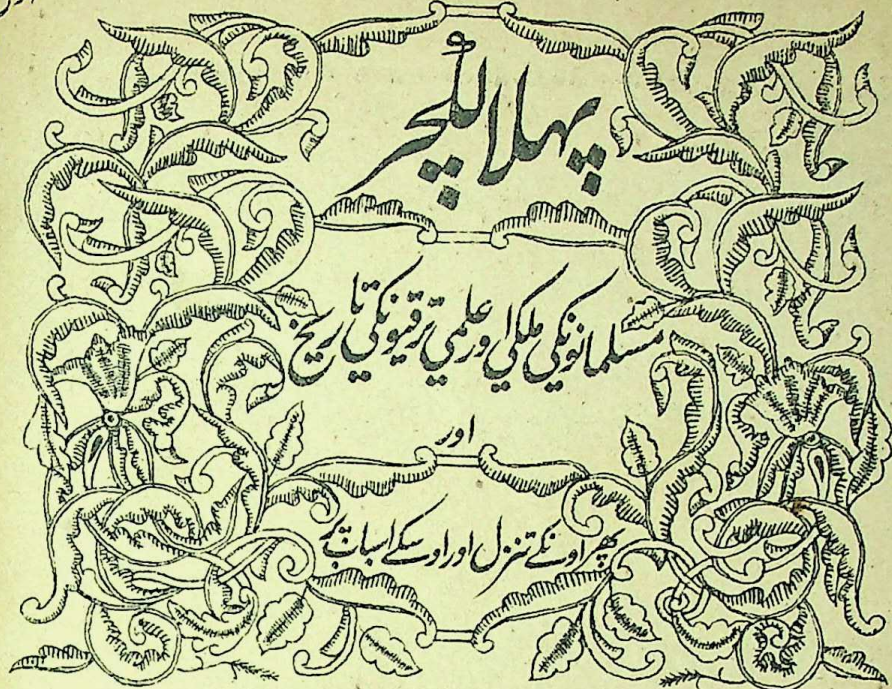 پہلا لکچر
مسلمانونکی ملکی اور علمی ترقیونکی تاریخ
اور
پھر اونکے تنزل اور اوسکے اسباب پر